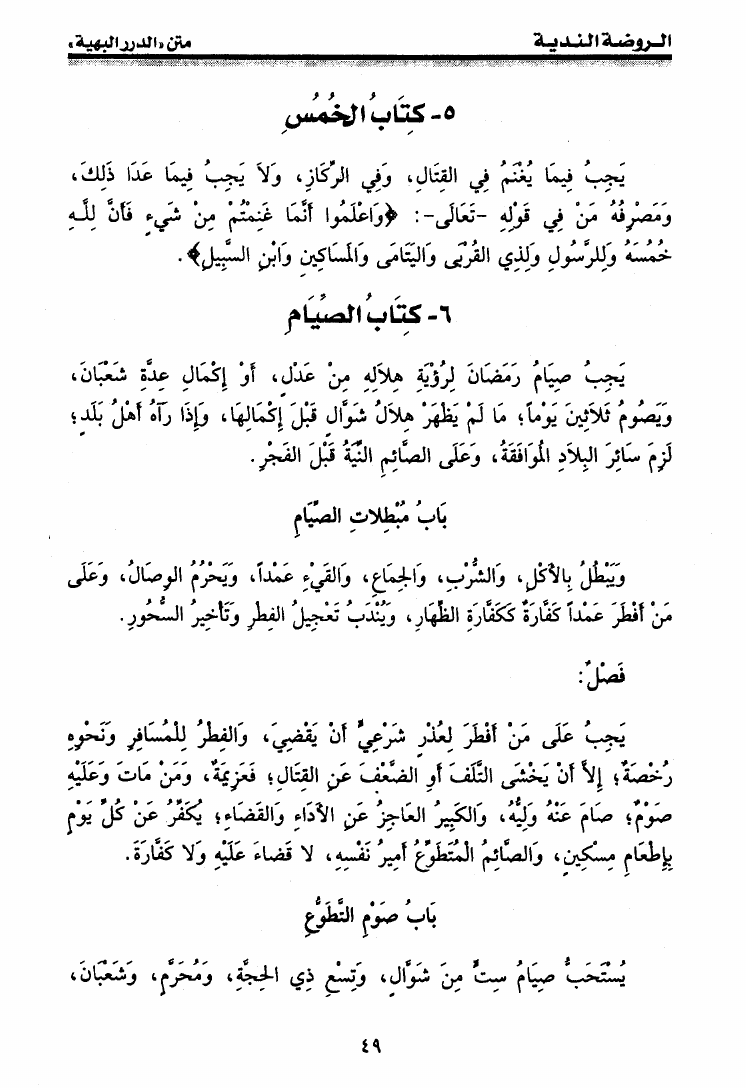 الروضة الندية
متن «الدرر البهية»
٥- كِتَابُ الخُمُسِ
يَجِبُ فِيمَا يُغْنَمُ فِي القِتَالِ، وَفِي الرِّكَازِ، وَلاَ يَجِبُ فِيمَا عَدَا ذَلِكَ،
وَمَصْرِفُهُ مَنْ فِي قَوْلِهِ -تَعَالَى-: ﴿وَاعْلَمُوا أَنَّمَا غَنِمْتُمْ مِنْ شَيْءٍ فَأَنَّ لِلَّهِ
خُمُسَهُ وَلِلرَّسُولِ وَلِذِي القُرْبَى وَاليَتَامَى وَالمَسَاكِينِ وَابْنِ السَّبِيلِ﴾.
٦- كِتَابُ الصِّيَامِ
يَجِبُ صِيَامُ رَمَضَانَ لِرُؤْيَةِ هِلاَلِهِ مِنْ عَدْلٍ، أَوْ إِكْمَالِ عِدَّةِ شَعْبَانَ،
وَيَصُومُ ثَلاَثِينَ يَوْماً؛ مَا لَمْ يَظْهَرْ هِلاَلُ شَوَّالٍ قَبْلَ إِكْمَالِهَا، وَإِذَا رَآهُ أَهْلُ بَلَدٍ؛
لَزِمَ سَائِرَ البِلاَدِ المُوَافَقَةُ، وَعَلَى الصَّائِمِ النِّيَّةُ قَبْلَ الفَجْرِ.
بَابُ مُبْطِلاتِ الصِّيَامِ
وَيَبْطُلُ بِالأَكْلِ، وَالشُّرْبِ، وَالجِمَاعِ، وَالقَيْءِ عَمْداً، وَيَحْرُمُ الوِصَالُ، وَعَلَى
مَنْ أَفْطَرَ عَمْداً كَفَّارَةٌ كَكَفَّارَةِ الظِّهَارِ، وَيُنْدَبُ تَعْجِيلُ الفِطْرِ وَتَأْخِيرُ السَّحُورِ.
فَصْلٌ:
يَجِبُ عَلَى مَنْ أَفْطَرَ لِعُذْرٍ شَرْعِيٍّ أَنْ يَقْضِيَ، وَالفِطْرُ لِلْمُسَافِرِ وَنَحْوِهِ
رُخْصَةٌ؛ إِلاَّ أَنْ يَخْشَى التَّلَفَ أَوِ الضَّعْفَ عَنِ القِتَالِ؛ فَعَزِيمَةٌ، وَمَنْ مَاتَ وَعَلَيْهِ
صَوْمٌ؛ صَامَ عَنْهُ وَلِيُّهُ، وَالكَبِيرُ العَاجِزُ عَنِ الأَدَاءِ وَالقَضَاءِ؛ يُكَفِّرُ عَنْ كُلِّ يَوْمٍ
بِإِطْعَامِ مِسْكِينٍ، وَالصَّائِمُ المُتَطَوِّعُ أَمِيرُ نَفْسِهِ، لا قَضَاءَ عَلَيْهِ وَلا كَفَّارَةَ.
بَابُ صَوْمِ التَّطَوُّعِ
يُسْتَحَبُّ صِيَامُ سِتٍّ مِنَ شَوَّالٍ، وَتِسْعِ ذِي الحِجَّةِ، وَمُحَرَّمٍ، وَشَعْبَانَ،
٤٩